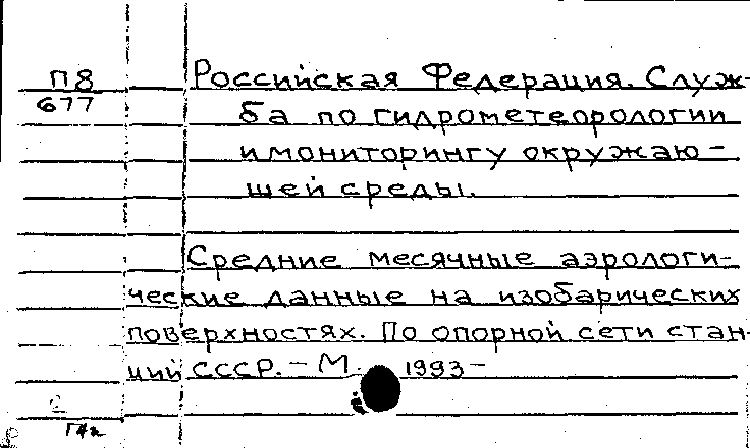 П8
677
Российская Федерация. Служ-
ба по гидрометеорологии
и мониторингу окружаю-
щей среды.
Средние месячные аэрологи-
ческие данные на изобарических
поверхностях. По опорной сети стан-
ций СССР. - М. 1993-